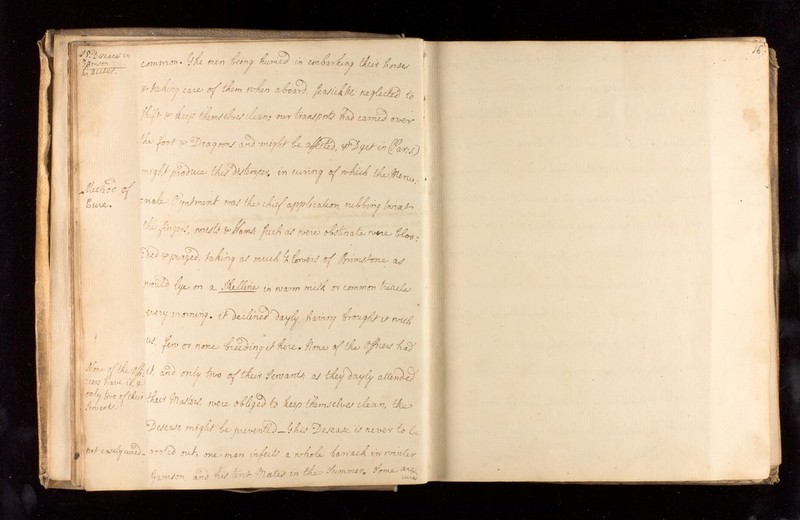 15 Diseases in
Garrison
common. The men being hurried in embarking their horses
& taking care of them when aboard, seasick &c neglected to
shift & keep themselves clean, our transports had carried over
the foot & Dragoons and might be affected, & Dyet in
might produce this Distemper, in curing of which the Mercu:
Method of
Cure.
:riale Ointment was the chief application rubbing
the fingers, wrists & Hams. Such as were obstinate were bloo:
:ded & purged, taking as much flowers of Brimstone as
would lye on a Skelling in warm milk or common
every morning. it declined dayly having brought it with
us, few or none breeding it here. None of the Officers had
None of the Offi:
cers have it &
only two of their
Servants.
it, and only two of their Servants, as they dayly attended
their Masters, were obliged to keep themselves clean, the
Desease might be prevented_ This Desease is never to be
not easily cured.
rooted out, one man infects a whole barrack in winter
Garrison and his tent Mates in the Summer. Some
16